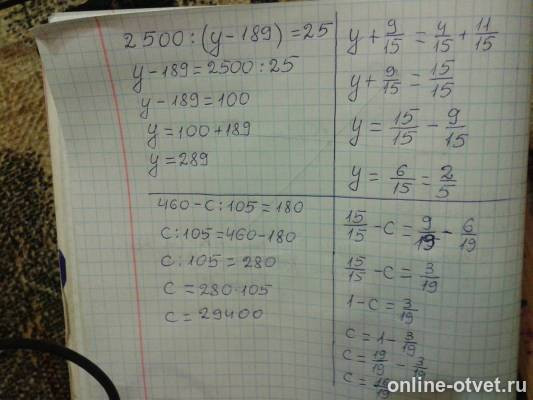 2500:(y-189)=25
y-189=2500:25
y-189=100
y=100+189
y=289
y+9/15=4/15+11/15
y+9/15=15/15
y=15/15-9/15
y=6/15=2/5
460-c:105=180
c:105=460-180
c:105=280
c=280·105
c=29400
15/15-c=9/19-6/19
15/15-c=3/19
1-c=3/19
c=1-3/19
c=19/19-3/19
c=
online-otvet.ru